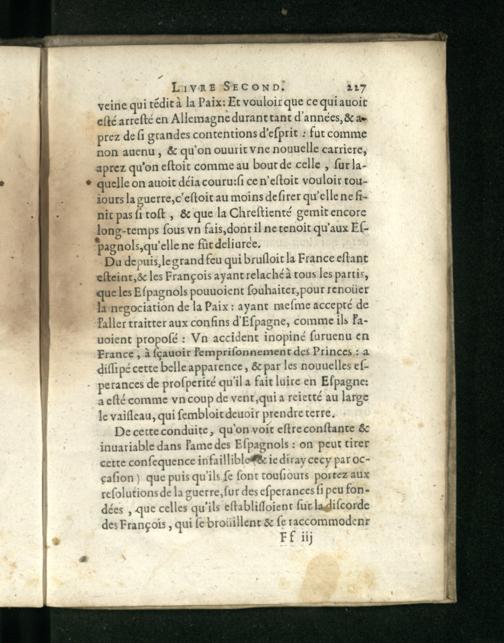 LIVRE SECOND. 227
veine qui tẽdit à la Paix: Et vouloir que ce qui auoit
esté arresté en Allemagne durant tant d'années, & a-
prez de si grandes contentions d'esprit : fut comme
non auenu, & qu'on ouurit vne nouuelle carriere,
aprez qu'on estoit comme au bout de celle, sur la-
quelle on auoit déia couru: si ce n'estoit vouloir tou-
iours la guerre, c'estoit au moins desirer qu'elle ne fi-
nit pas si tost, & que la Chrestienté gemit encore
long-temps sous vn fais, dont il ne tenoit qu'aux Es-
pagnols, qu'elle ne fût deliurée.
Du depuis, le grand feu qui brusloit la France estant
esteint, & les François ayant relaché à tous les partis,
que les Espagnols pouuoient souhaiter, pour renoüer
la negociation de la Paix : ayant mesme accepté de
l'aller traitter aux confins d'Espagne, comme ils l'a-
uoient proposé : Vn accident inopiné suruenu en
France, à sçauoir l'emprisonnement des Princes : a
dissipé cette belle apparence, & par les nouuelles es-
perances de prosperité qu'il a fait luire en Espagne:
a esté comme vn coup de vent, qui a reietté au large
le vaisseau, qui sembloit deuoir prendre terre.
De cette conduite, qu'on voit estre constante &
inuariable dans l'ame des Espagnols : on peut tirer
cette consequence infaillible (& ie diray cecy par oc-
casion) que puis qu'ils se sont tousiours portez aux
resolutions de la guerre, sur des esperances si peu fon-
dées, que celles qu'ils establissoient sur la discorde
des François, qui se broüillent & se raccommodent
Ff iij